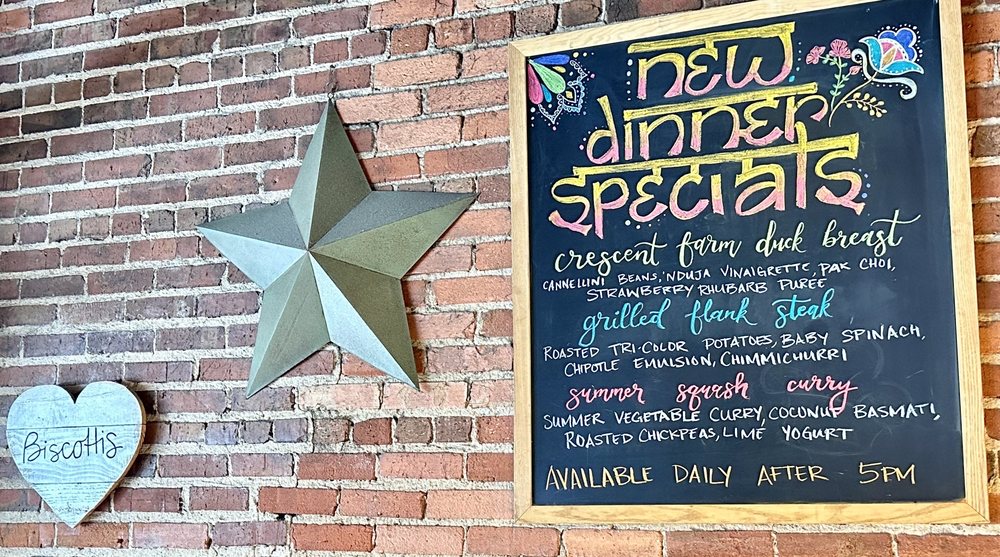 new
dinner
specials
crescent farm duck breast
CANNELLINI BEANS, 'NDUJA VINAIGRETTE, PAK CHOI,
STRAWBERRY RHUBARB PUREE
grilled flank steak
ROASTED TRI-COLOR POTATOES, BABY SPINACH,
CHIPOTLE EMULSION, CHIMMICHURRI
summer squash curry
SUMMER VEGETABLE CURRY, COCUNUT BASMATI,
ROASTED CHICKPEAS, LIME YOGURT
AVAILABLE DAILY AFTER 5PM
Biscottis